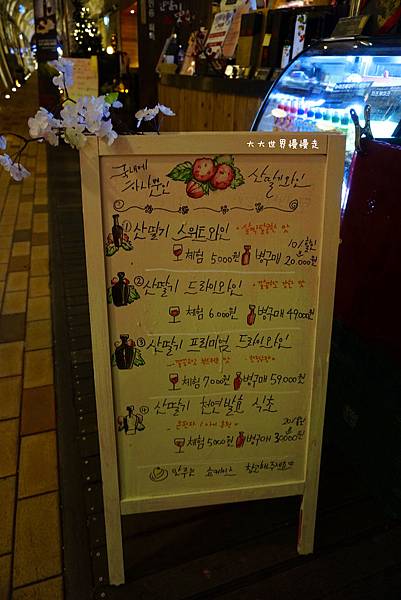 大大世界慢慢走
국내에
하나뿐인
산딸기와인
① 산딸기 스위트와인
체험 5000원 병구매 20.000원
② 산딸기 드라이와인
체험 6.000원 병구매 49000원
③ 산딸기 프리미엄 드라이와인
체험 7000원 병구매 59.000원
④ 산딸기 천연발효 식초
체험 5000원 병구매 30000원
안주는 쇼케이스 참고해주세요